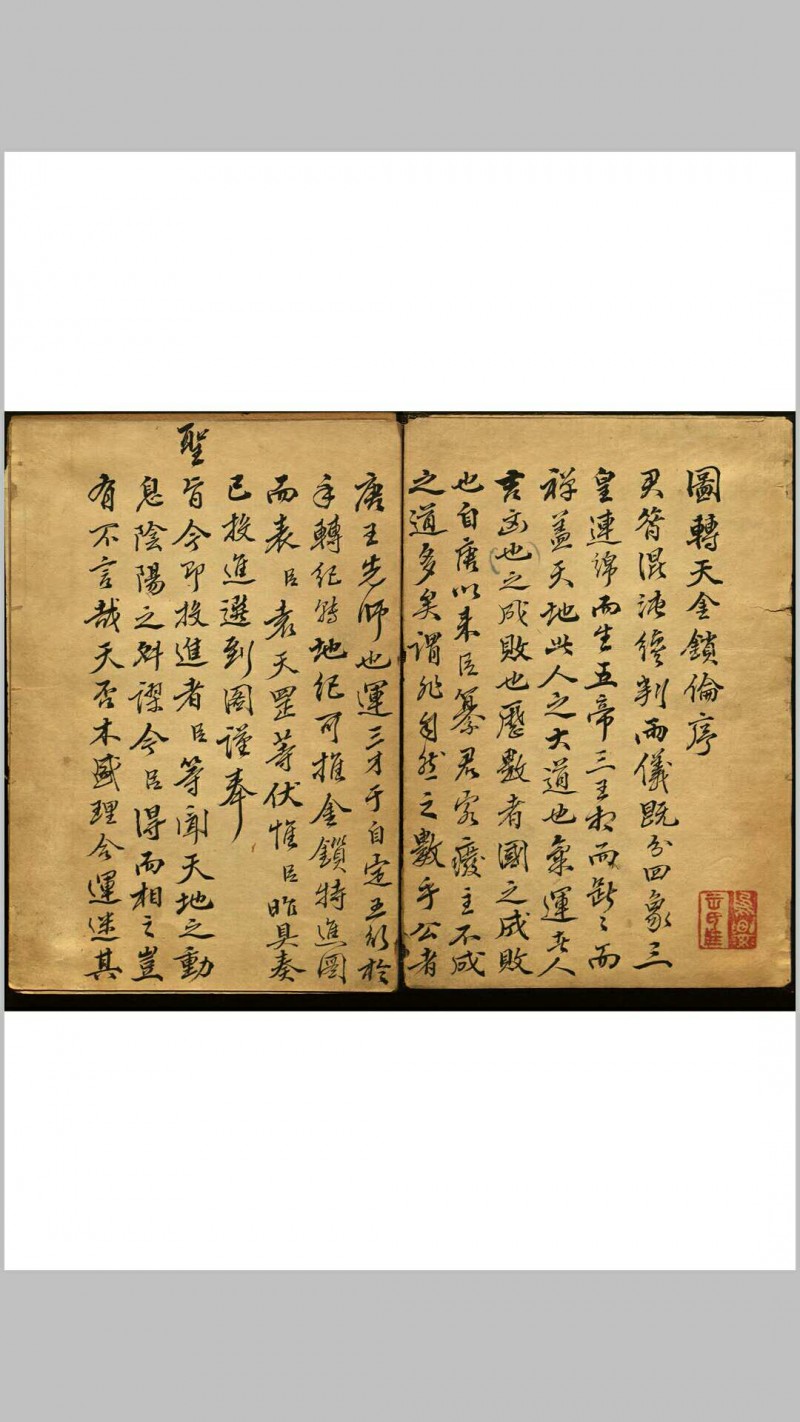 圖轉天金鎖倫序
混沌 判兩儀既分四象三
皇連綿而生五帝三王 而 〻而
禅蓋天地此人之大道也氣運 人
吉凶也之成敗也歷數者國之成敗
也自唐以来臣纂君 廢主不成
之道多矣謂非自然之數乎公者
唐王先師也運三才于自定五行於
手轉紀 地紀可推金鎖特進圖
而表臣袁天罡等伏惟臣昨具奏
已投進選到图謹奉
聖
旨今即投進者臣等聞天地之動
息陰陽之 謬今臣得而相之豈
有不言哉天否木盛理合運迷其